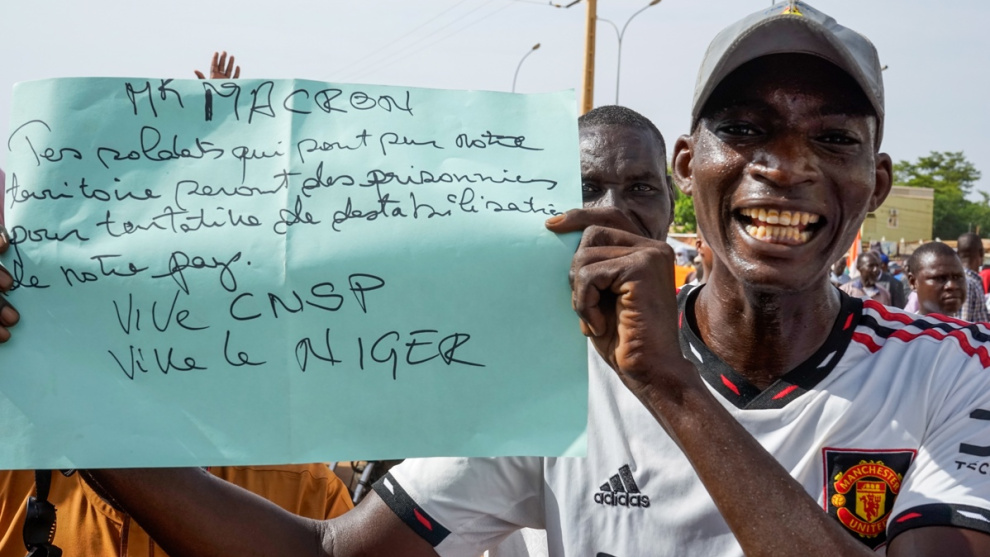 MR MACRON
Tes soldats qui sont sur notre
territoire seront des prisonniers
pour tantative de destabilisation
de notre pay.
VIVE CNSP
VIVE le NIGER
adidas
MANCHESTER
UNITED
TEC